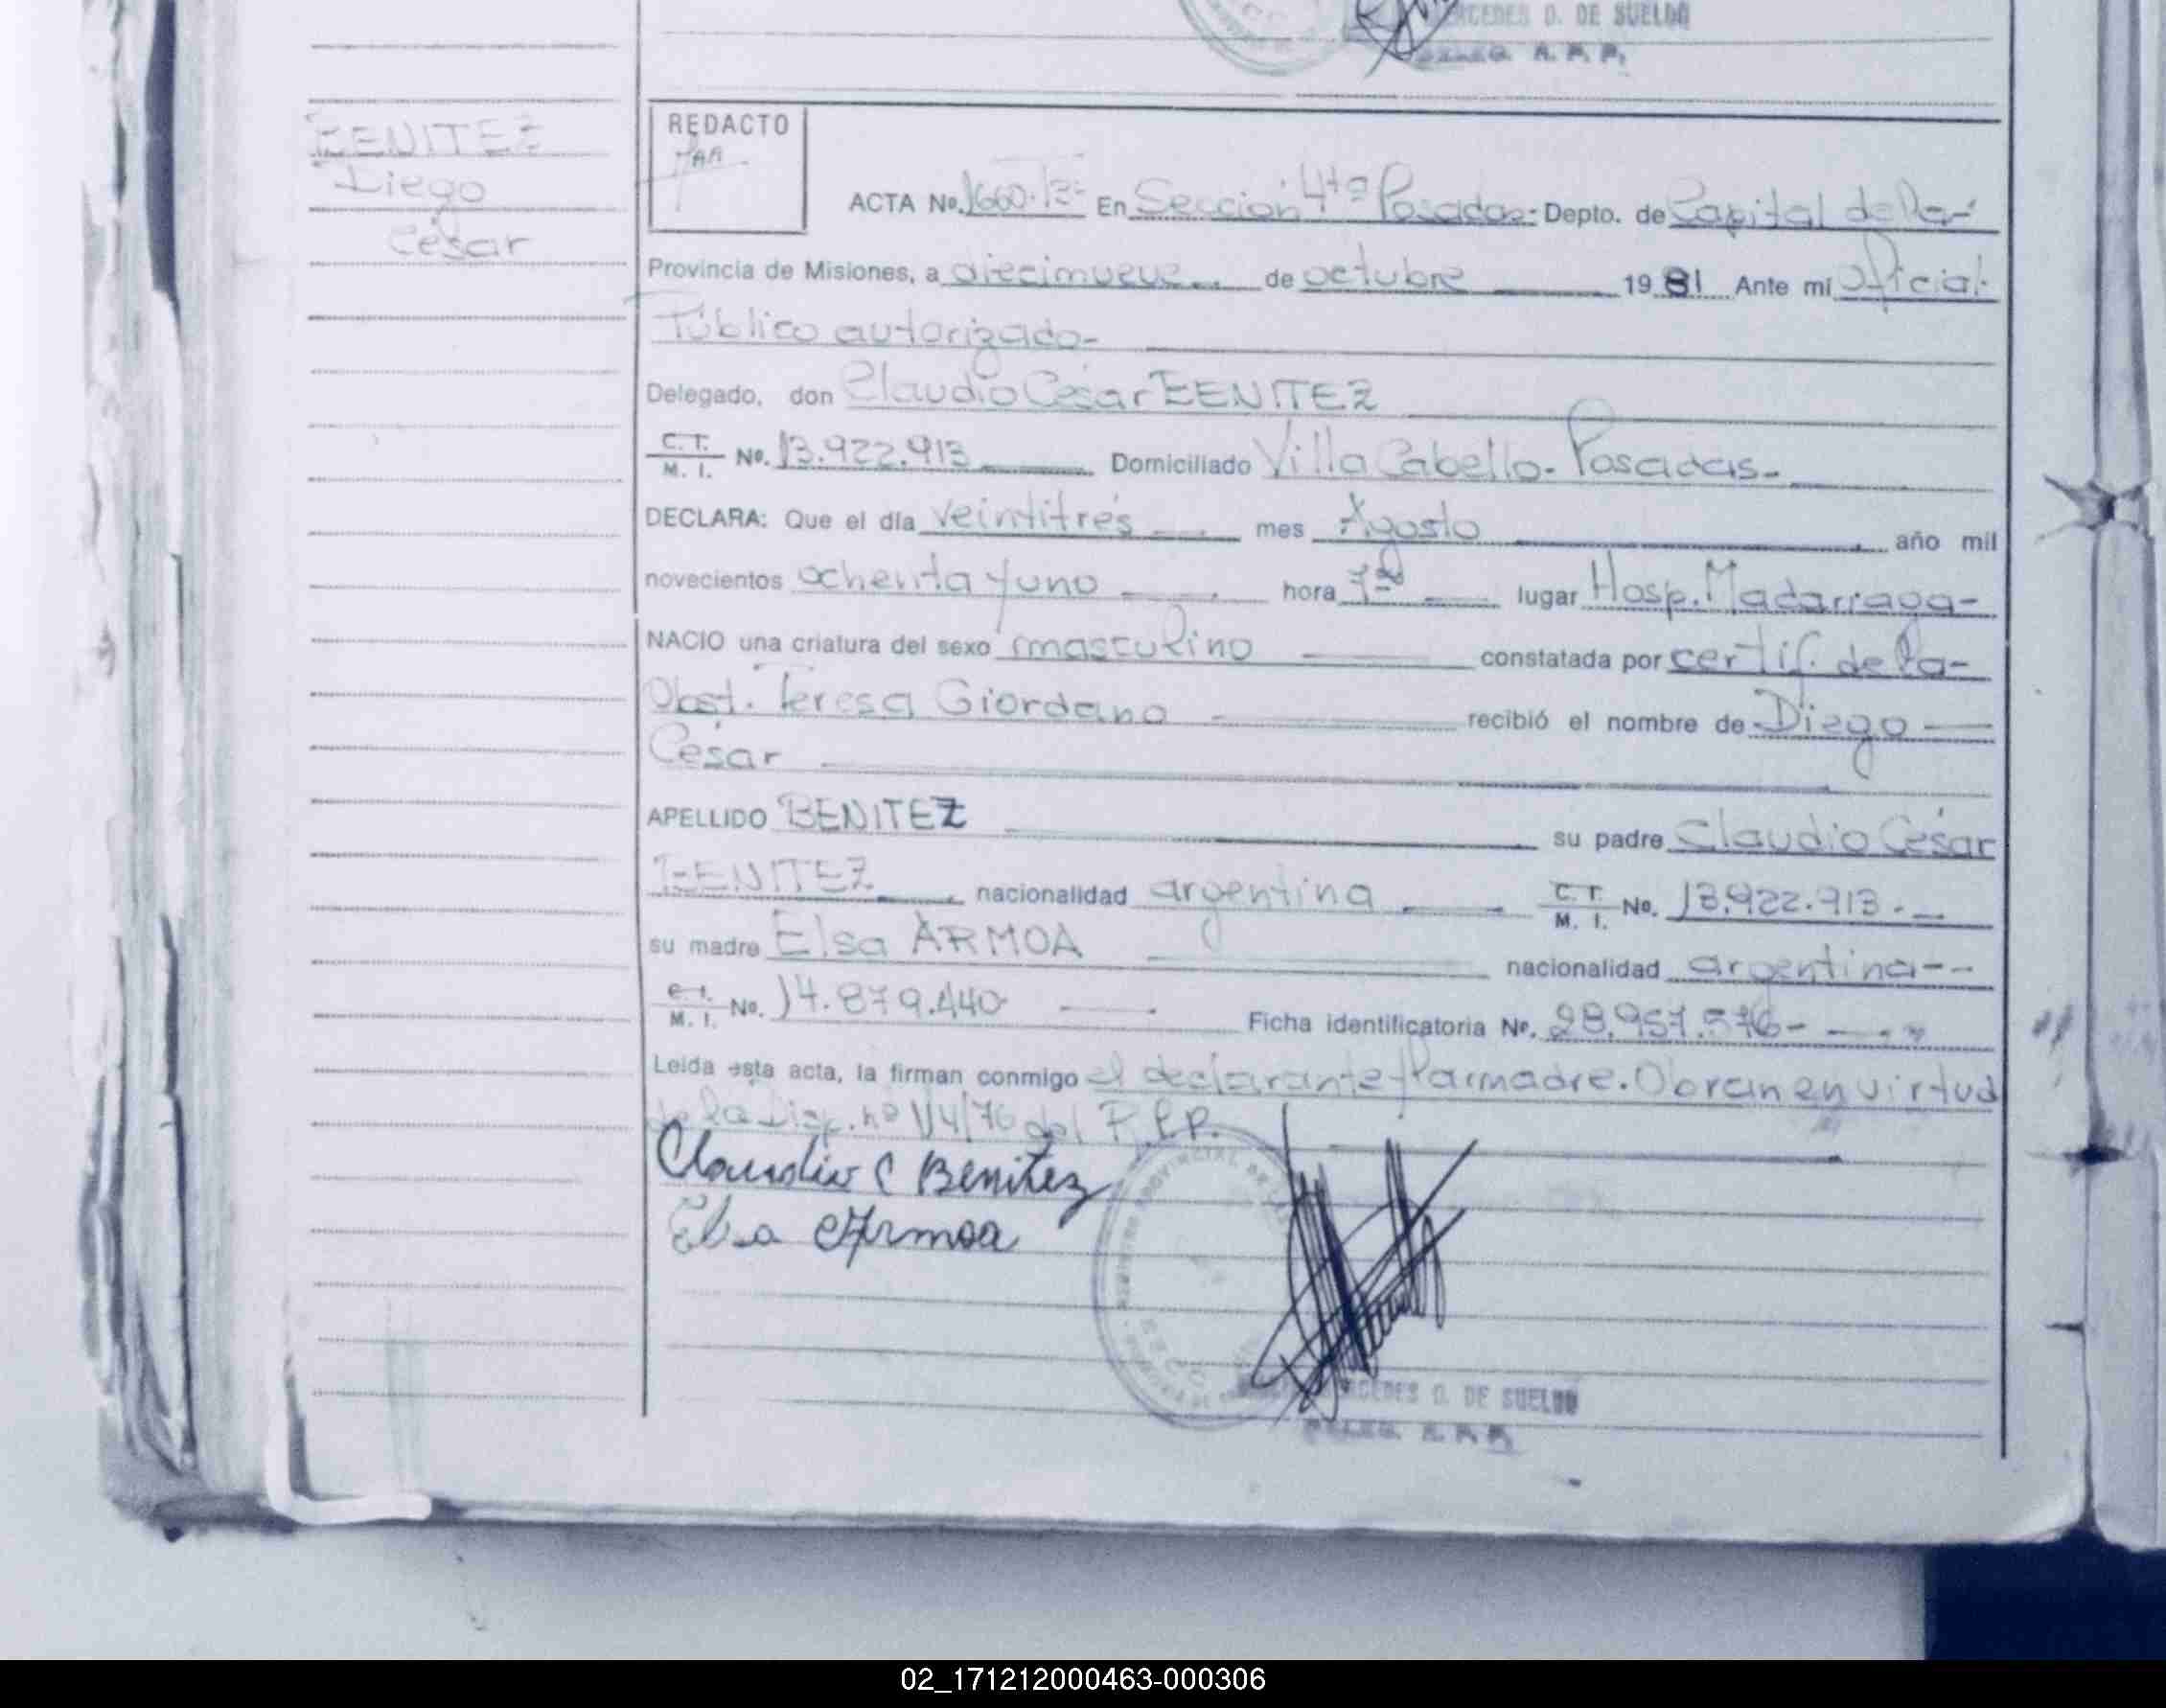 MERCEDES O. DE SUELDO
DELEG. R. P. P.
BENITEZ
Diego
César
REDACTO
ACTA No. 1660. Tº En Sección 4ta Posadas- Depto. de Capital de la-
Provincia de Misiones, a diecinueve de octubre 1981 Ante mí Oficial
Público autorizado-
Delegado, don Claudio César BENITEZ
C.T. M. I. No. 13.922.913 Domiciliado Villa Cabello- Posadas-
DECLARA: Que el día veintitrés mes Agosto año mil
novecientos ochenta y uno hora 7 lugar Hosp. Madarriaga-
NACIO una criatura del sexo masculino constatada por certif. de la-
Obst. Teresa Giordano recibió el nombre de Diego
César
APELLIDO BENITEZ su padre Claudio César
BENITEZ nacionalidad argentina C.T. M. I. No. 13.922.913.
su madre Elsa ARMOA nacionalidad argentina--
M. I. No. 14.879.440 Ficha identificatoria No. 28.957.576-
Leída esta acta, la firman conmigo el declarante y la madre. Obran en virtud
de la Disp. nº 114/76 del
Claudio C Benitez
Elsa Armoa
MERCEDES O. DE SUELDO
DELEG. R. P. P.
02_171212000463-000306